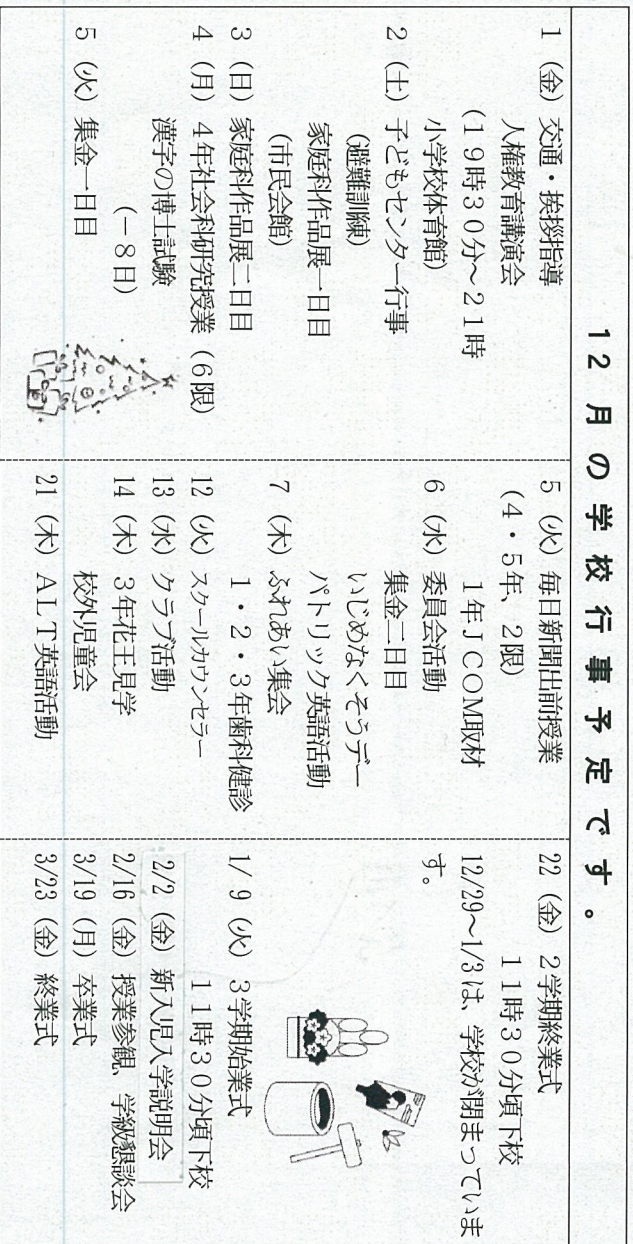 12月の学校行事予定です。
1（金）交通・挨拶指導
人権教育講演会
(19時30分～21時
小学校体育館)
2（土）子どもセンター行事
(避難訓練)
家庭科作品展一日目
(市民会館)
3（日）家庭科作品展二日目
4（月）4年社会科研究授業（6限）
漢字の博士試験
(－8日)
5（火）集金一日目
5（火）毎日新聞出前授業
(4・5年、2限)
1年JCOM取材
6（水）委員会活動
集金二日目
いじめなくそうデー
パトリック英語活動
7（木）ふれあい集会
1・2・3年歯科健診
12（火）スクールカウンセラー
13（水）クラブ活動
14（木）3年花王見学
校外児童会
21（木）ALT英語活動
22（金）2学期終業式
11時30分頃下校
12/29～1/3は、学校が閉まっていま
す。
1/ 9（火）3学期始業式
11時30分頃下校
2/2（金）新入児入学説明会
2/16（金）授業参観、学級懇談会
3/19（月）卒業式
3/23（金）終業式